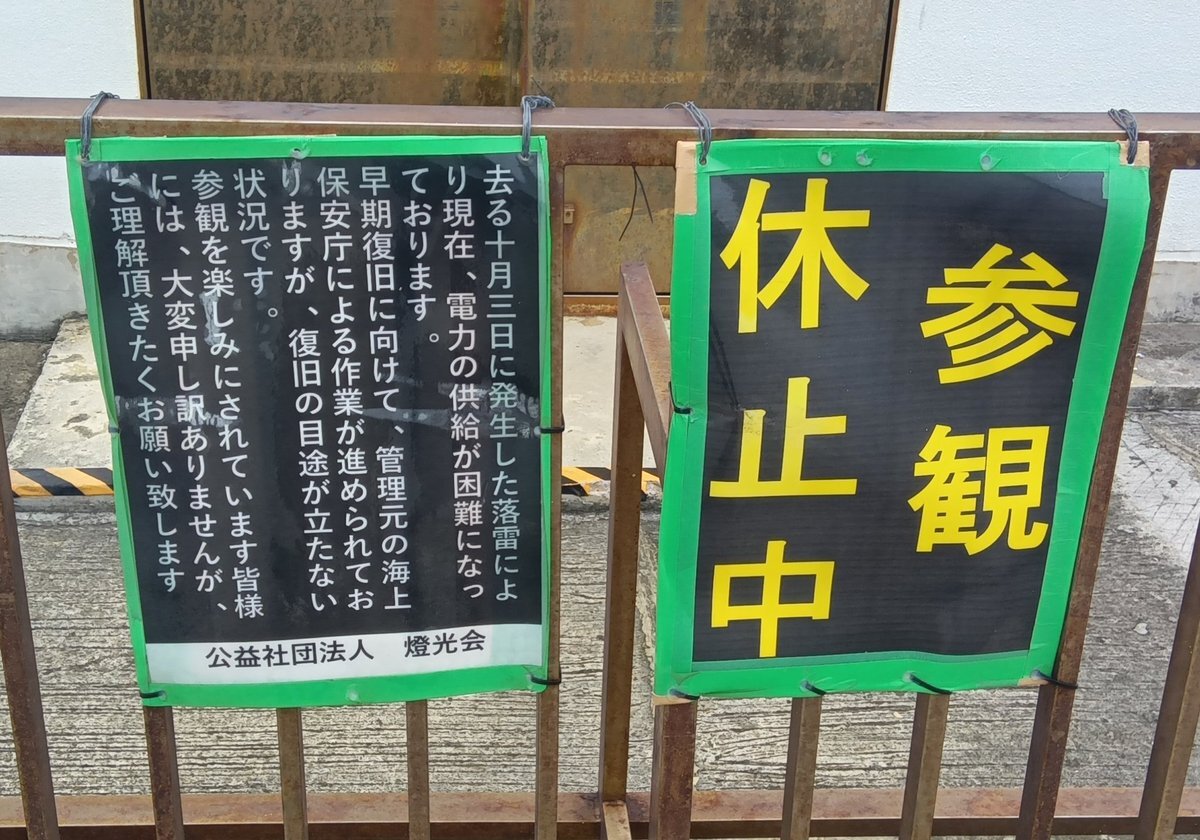 去る十月三日に発生した落雷によ
り現在、電力の供給が困難になっ
ております。
早期復旧に向けて、管理元の海上
保安庁による作業が進められてお
りますが、復旧の目途が立たない
状況です。
参観を楽しみにされています皆様
には、大変申し訳ありませんが、
ご理解頂きたくお願い致します
公益社団法人 燈光会
参観
休止中